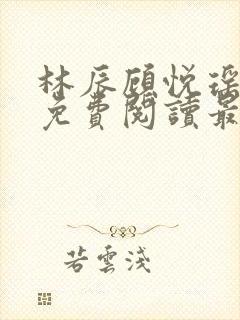 林辰顾悦瑶
免費閱讀最
若雲淺